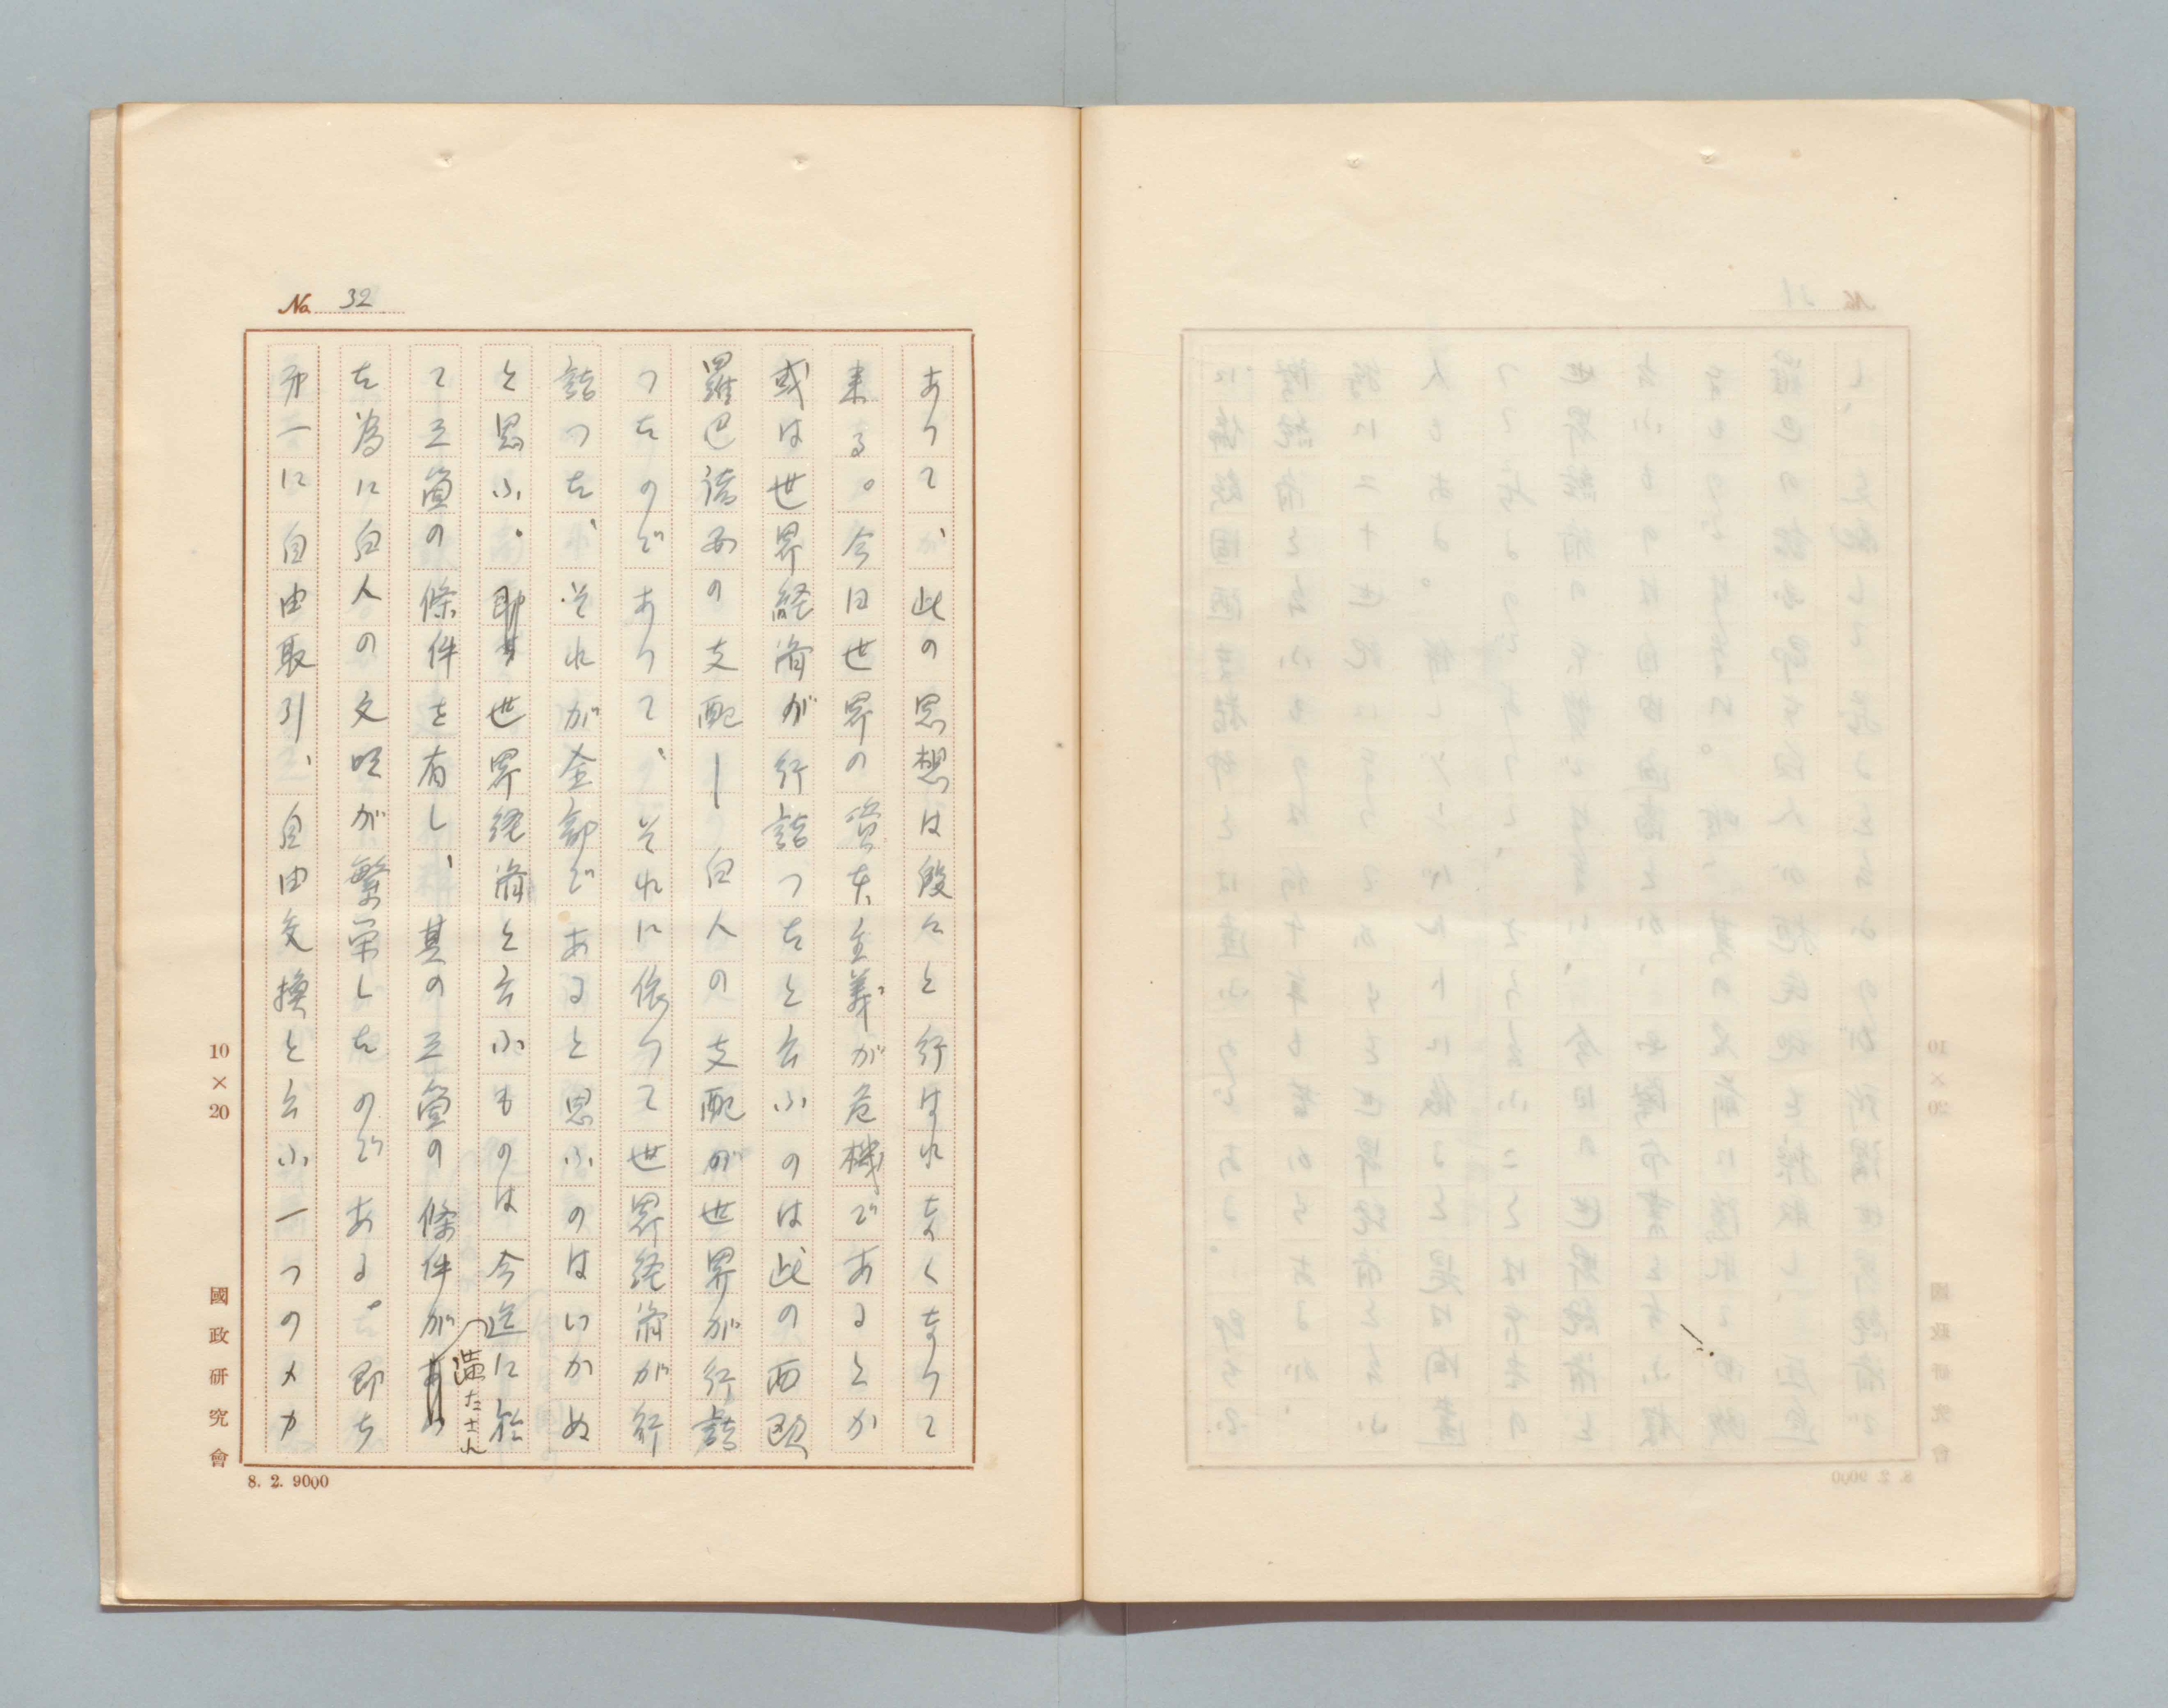 No. 32
あつて、此の思想は段々と行はれなくなつて
来る。今日世界の資本主義が危機であるとか
或は世界経済が行詰つたと云ふのは此の西欧
羅巴諸国の支配―白人の支配が世界が行詰
つたのであつて、それに依つて世界経済が行
詰つた、それが全部であると思ふのはいかぬ
と思ふ。世界経済と云ふものは今迄に於
て三箇の條件を有し、其の三箇の條件が
満たされ
た為に白人の文明が繁栄したのである。即ち
第一に自由取引、自由交換と云ふ一つのメカ
10×20 國政研究會
8. 2. 9000